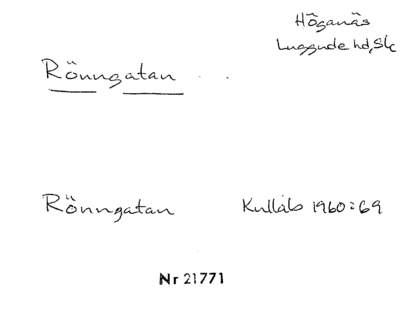 Höganäs
Luggude hd, Sk
Rönngatan
Rönngatan Kullab 1960:69
Nr 21771